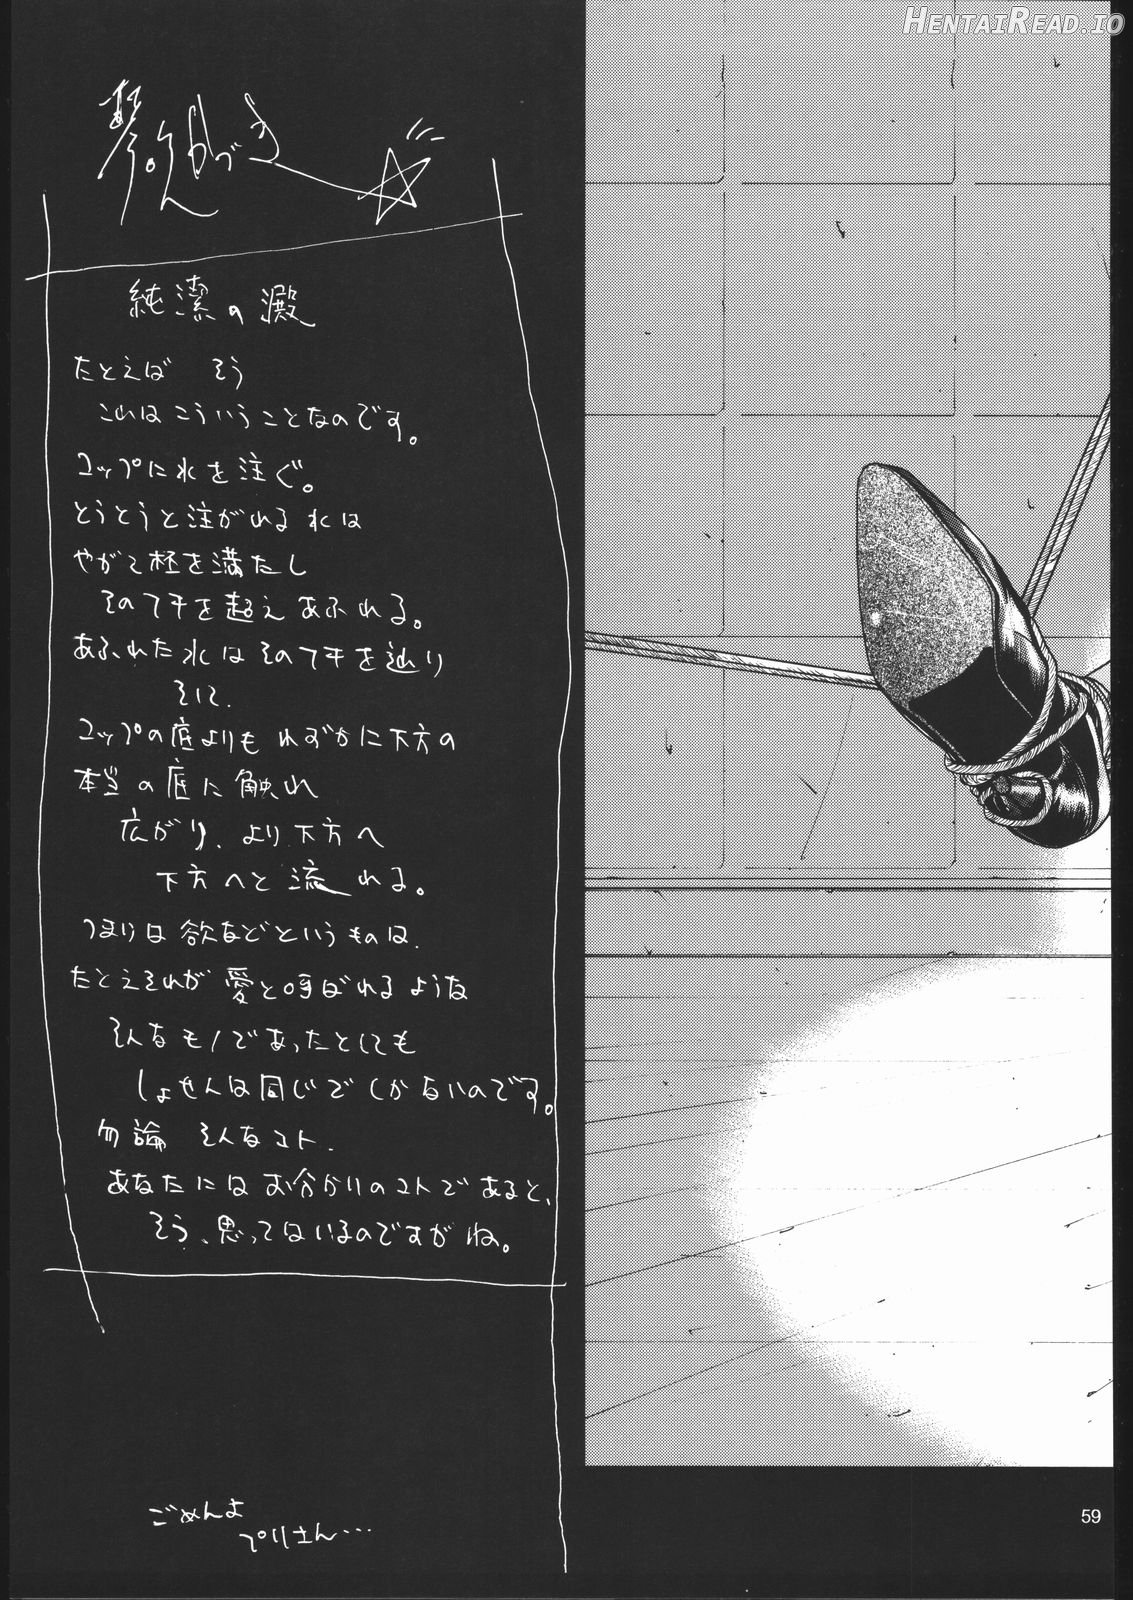 HENTAIREAD.IO
琴吹かづき
純潔の澱
たとえば そう
これはこういうことなのです。
コップに水を注ぐ。
とうとうと注がれる水は
やがて杯を満たし
そのフチを超えあふれる。
あふれた水はそのフチを辿り
そして、
コップの底よりもわずかに下方の
本当の底に触れ
広がり、より下方へ
下方へと流れる。
つまりは欲などというものは、
たとえそれが愛と呼ばれるような
そんなモノであったとしても
しょせんは同じでしかないのです。
勿論 そんなコト、
あなたにはお分かりのコトであると、
そう、思ってはいるのですがね。
ごめんよ
プリさん…
59